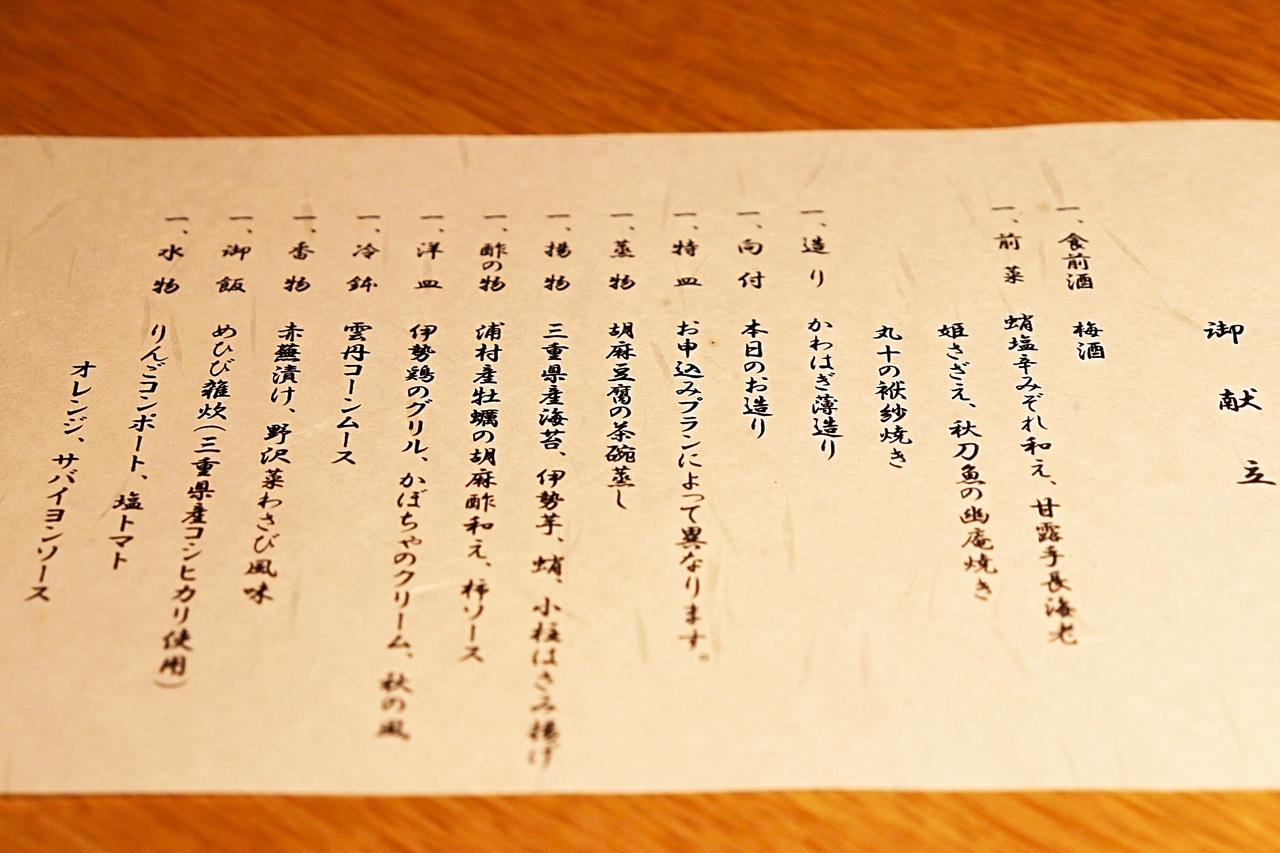 御献立
一、食前酒 梅酒
一、前菜 蛸塩辛みぞれ和え、甘露手長海老
姫さざえ、秋刀魚の幽庵焼き
丸十の袱紗焼き
一、造り かわはぎ薄造り
一、向付 本日のお造り
一、特皿 お申込みプランによって異なります。
一、蒸物 胡麻豆腐の茶碗蒸し
一、揚物 三重県産海苔、伊勢芋、蛸、小柱はさみ揚げ
一、酢の物 浦村産牡蠣の胡麻酢和え、柿ソース
一、洋皿 伊勢鶏のグリル、かぼちゃのクリーム、秋の風
一、冷鉢 雲丹コーンムース
一、香物 赤蕪漬け、野沢菜わさび風味
一、御飯 めひび雑炊(三重県産コシヒカリ使用)
一、水物 りんごコンポート、塩トマト
オレンジ、サバイヨンソース